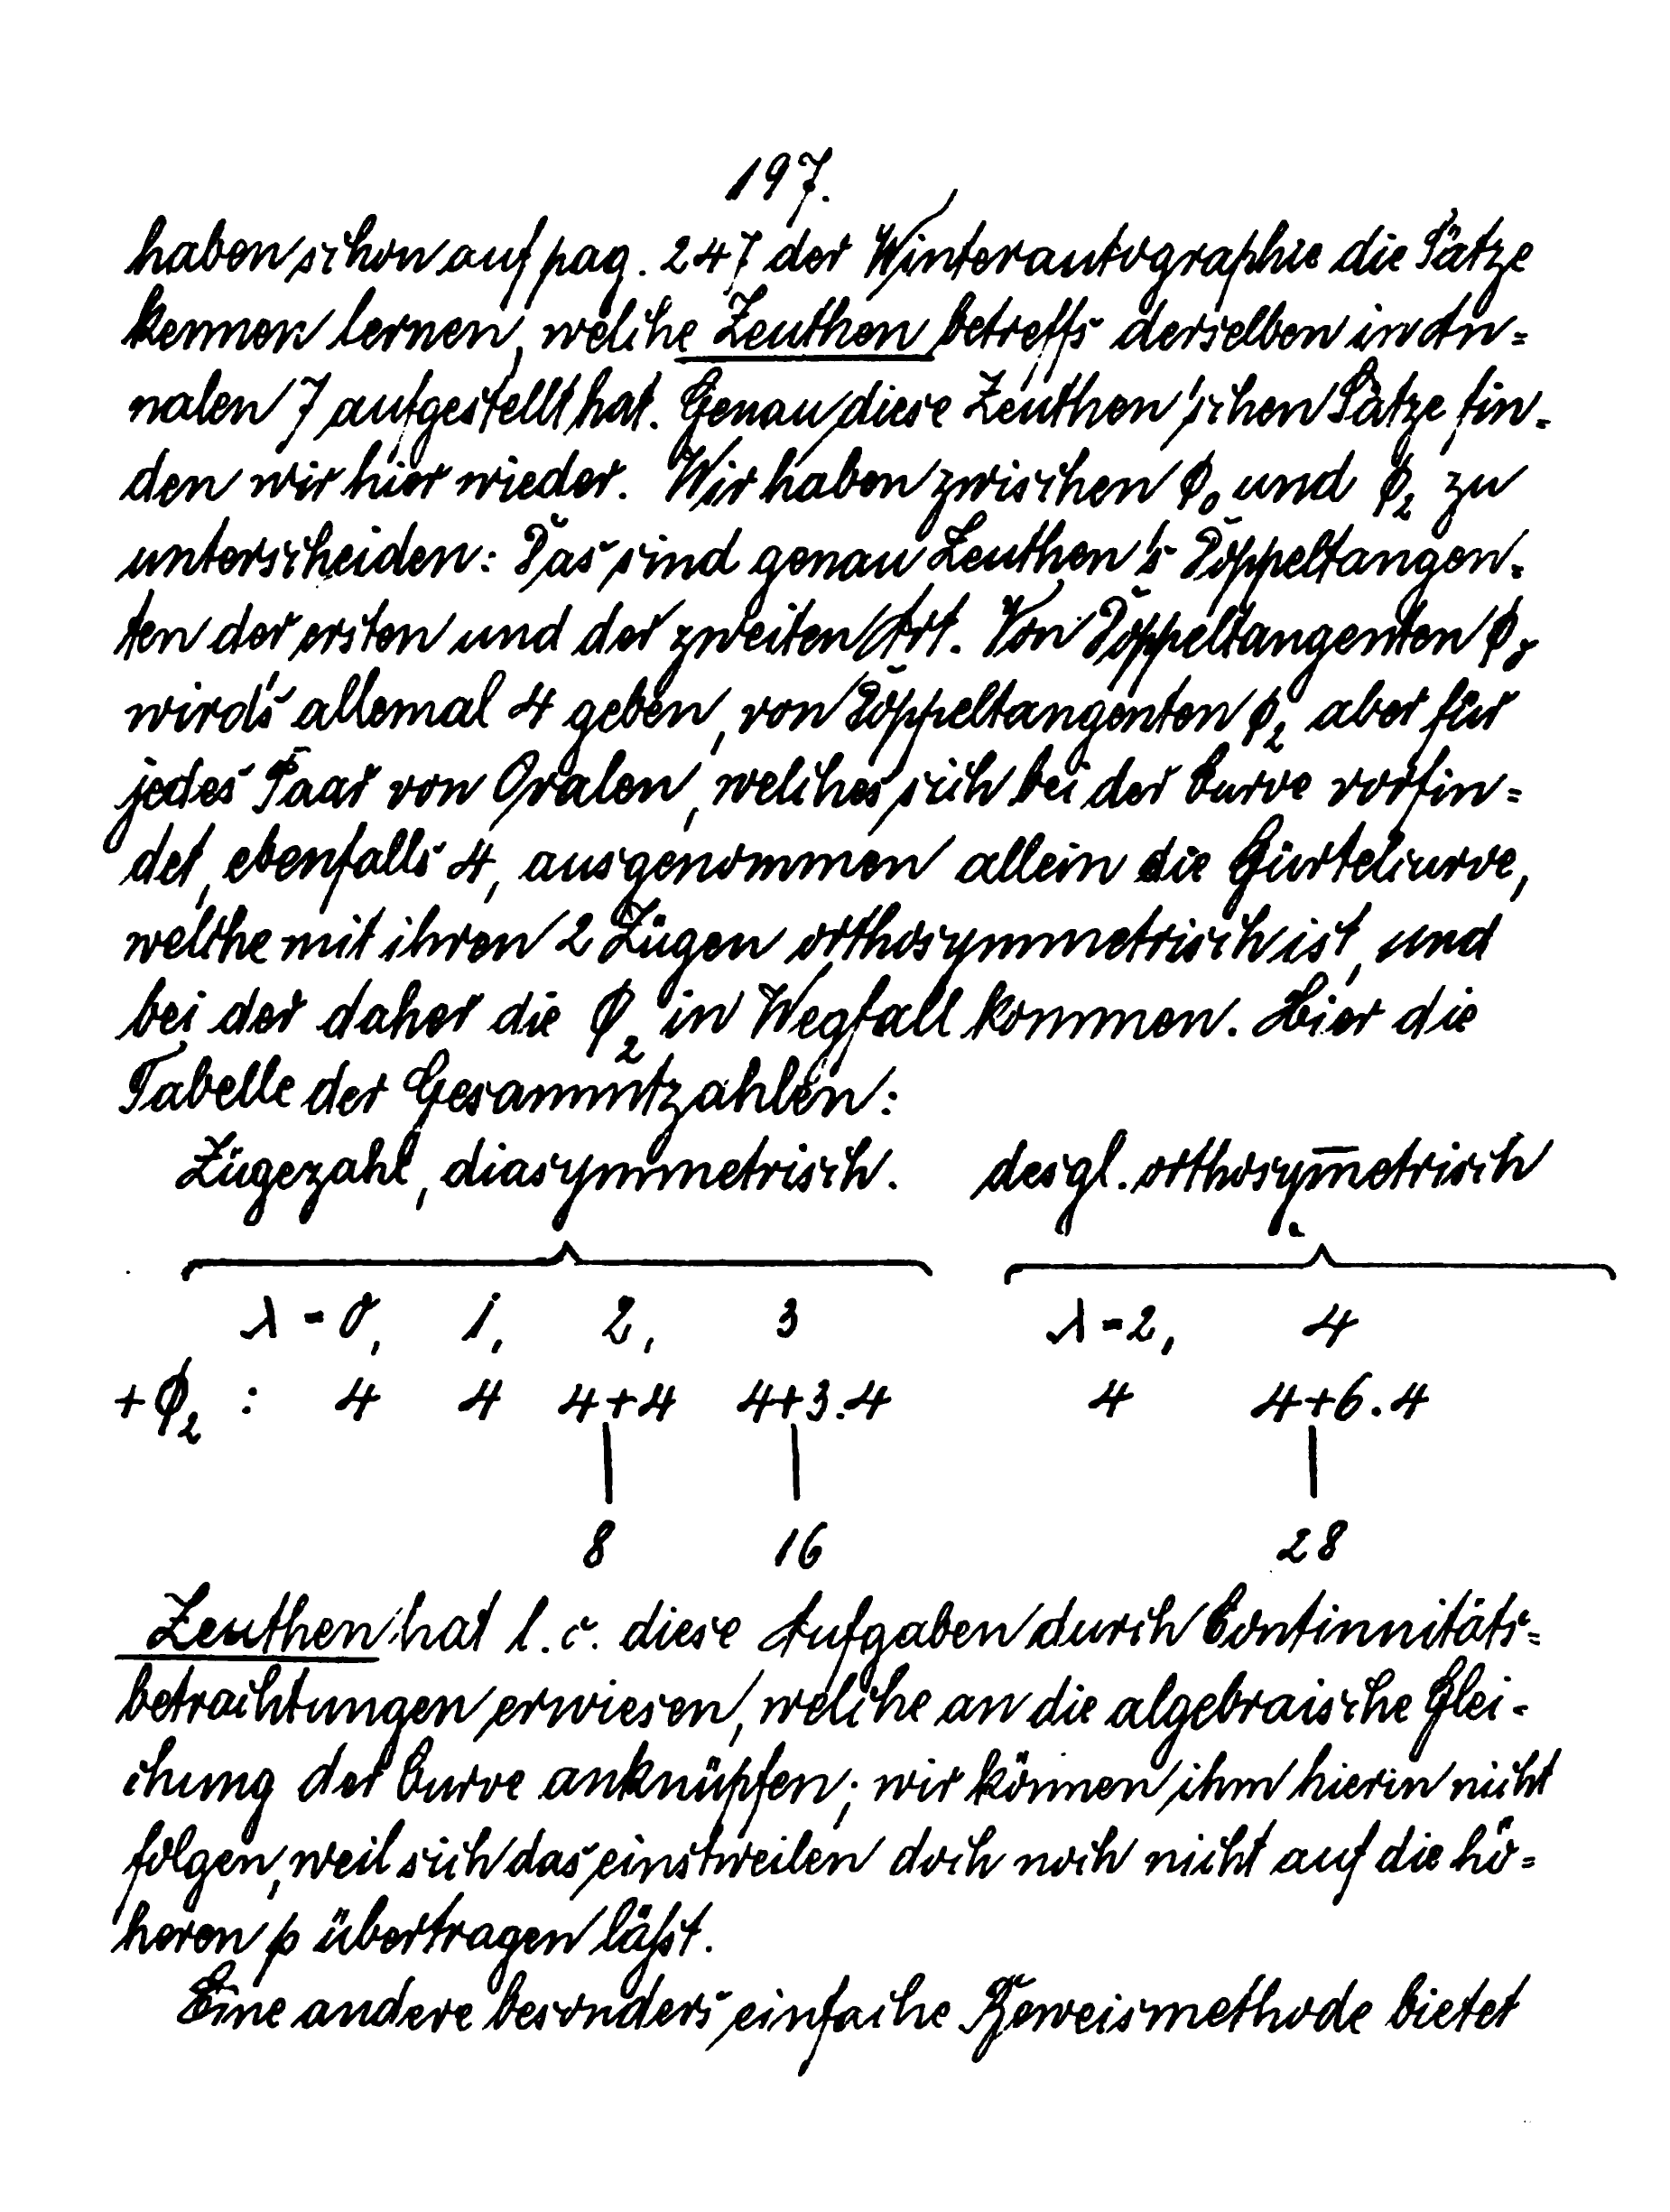 197.
haben schon auf pag. 247 der Winterautographie die Sätze
kennen lernen, welche Zeuthen betreffs derselben in An=
nalen 7 aufgestellt hat. Genau diese Zeuthen'schen Sätze fin-
den wir hier wieder. Wir haben zwischen ϕ₀ und ϕ₂ zu
unterscheiden: Das sind genau Zeuthen's Doppeltangen-
ten der ersten und der zweiten Art. Von Doppeltangenten ϕ₀
wird's allemal 4 geben, von Doppeltangenten ϕ₂ aber für
jedes Paar von Ovalen, welches sich bei der Curve vorfin=
det, ebenfalls 4, ausgenommen allein die Gürtelcurve,
welche mit ihren 2 Zügen orthosymmetrisch ist, und
bei der daher die ϕ₂ in Wegfall kommen. Hier die
Tabelle der Gesammtzahlen:
Zügezahl, diasymmetrisch. desgl. orthosym̅etrisch
λ = 0, 1, 2, 3 λ = 2, 4
+ ϕ₂ : 4 4 4+4 4+3.4 4 4+6.4
8 16 28
Zeuthen hat l. c. diese Aufgaben durch Continnitäts=
betrachtungen erwiesen, welche an die algebraische Glei-
chung der Curve anknüpfen; wir können ihm hierin nicht
folgen, weil sich das einstweilen doch noch nicht auf die hö=
heren p übertragen läßt.
Eine andere besonders einfache Beweismethode bietet